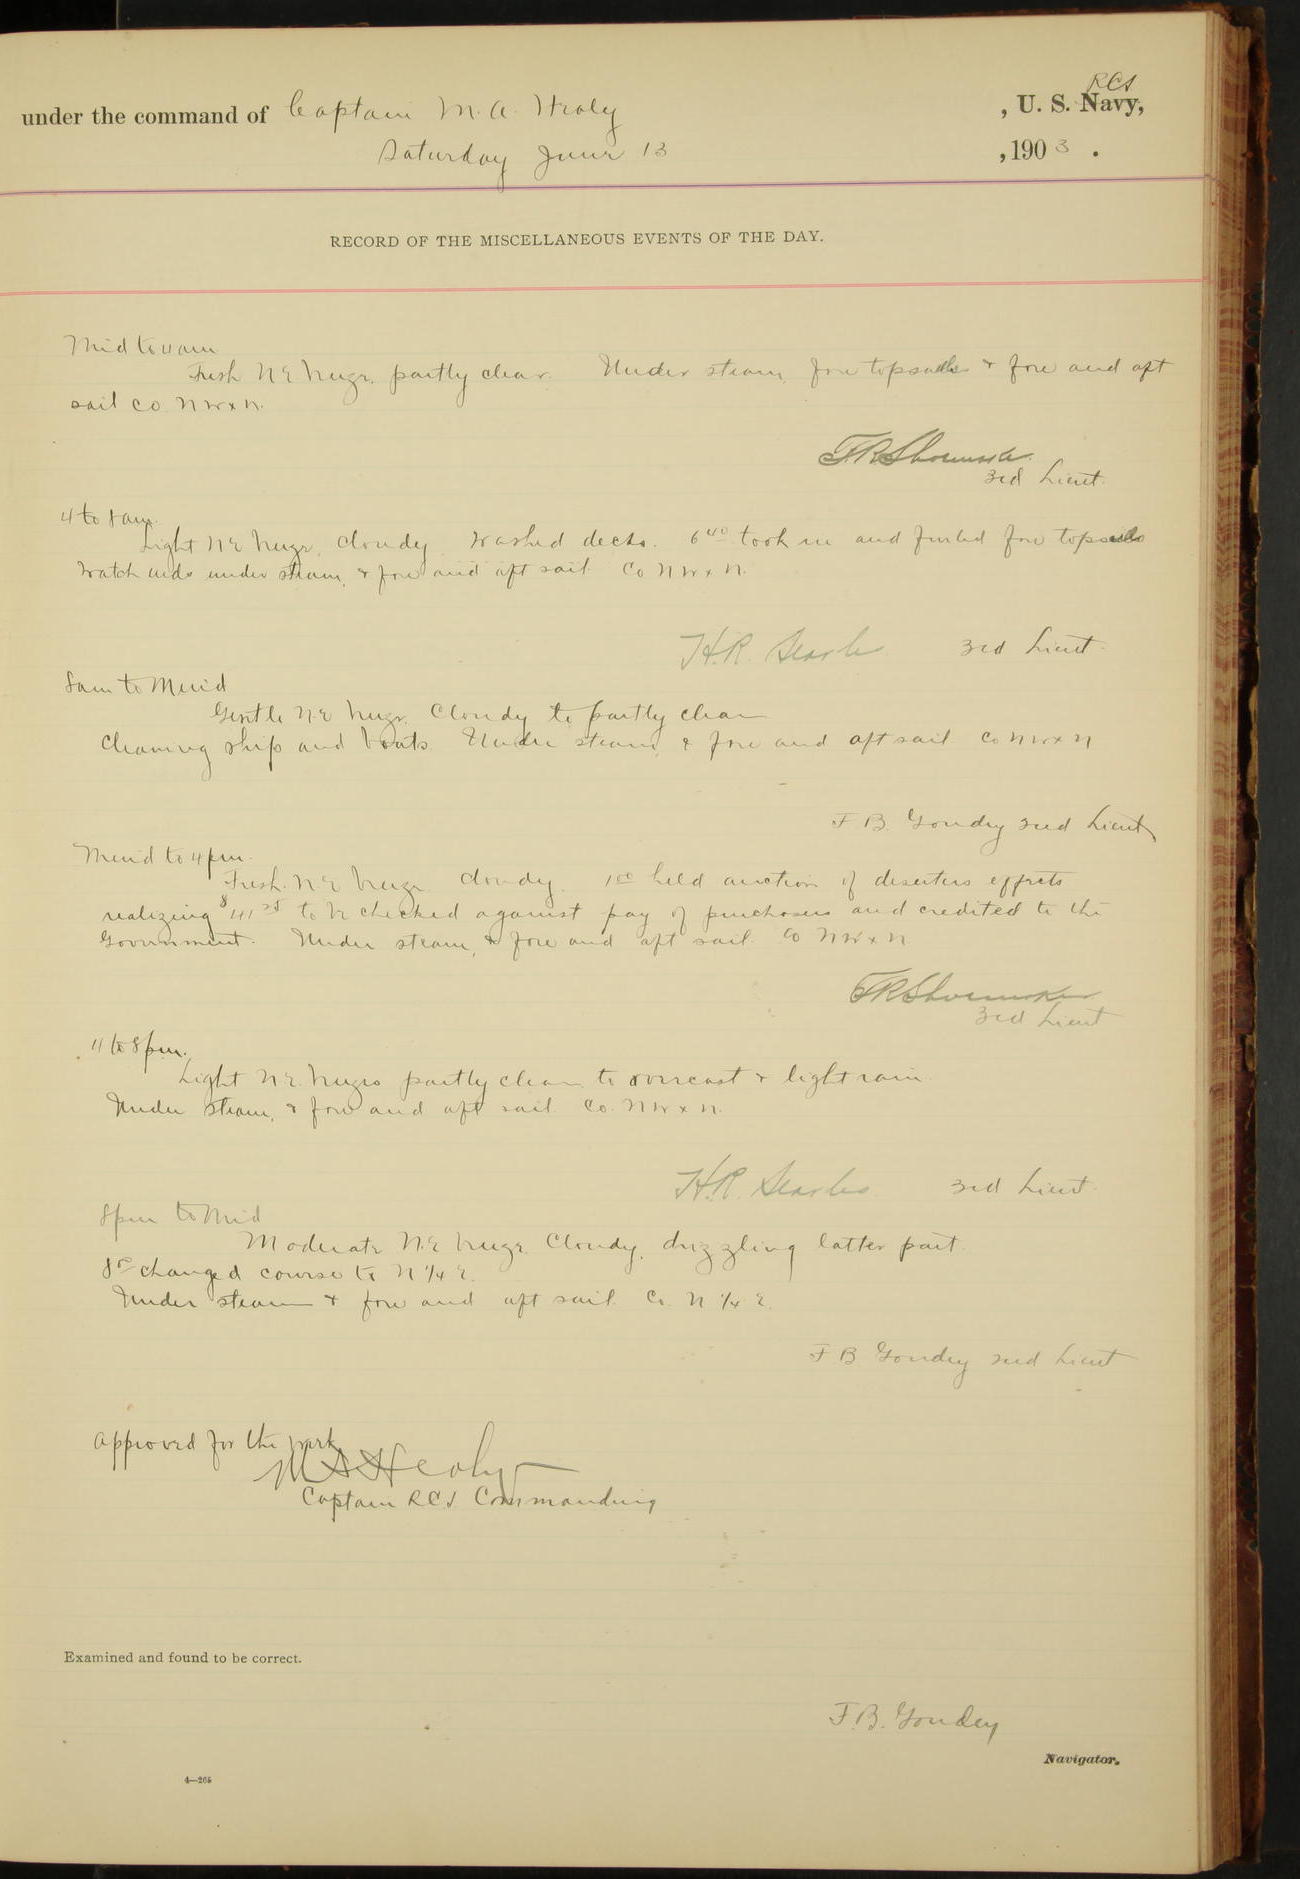 under the command of Captain M. A. Healy , U. S. Navy, RCS
Saturday June 13 , 1903 .
RECORD OF THE MISCELLANEOUS EVENTS OF THE DAY.
Mid to 4 am
Fresh NE breeze, partly clear. Under steam, fore topsails & fore and aft
sail Co NW x N.
F.R. Shoemaker
3rd Lieut.
4 to 8 am.
Light NE breeze, cloudy. Washed decks. 6 40 took in and furled fore topsails
Watch ends under steam, & fore and aft sail Co NW x N.
H.R. Searles 3rd Lieut.
8 am to Merid
Gentle NE breeze. Cloudy to partly clear
Cleaning ship and boats. Under steam, & fore and aft sail Co NW x N
F B. Goudey 2nd Lieut
Merid to 4 pm.
Fresh NE breeze cloudy. 1 00 held auction of deserters effects
realizing to be checked against pay of purchasers and credited to the
Government. Under steam, & fore and aft sail. Co NW x N
F R Shoemaker
3rd Lieut
4 to 8 pm.
Light NE. breezes partly clear to overcast & light rain
Under steam, & fore and aft sail. Co. NW x N.
H.R. Searles 3rd Lieut.
8 pm to Mid
Moderate N.E breeze. Cloudy, drizzling latter part.
changed course to N 1/4 E.
Under steam & fore and aft sail. Co. N 1/4 E.
F B Goudey 2nd Lieut
Approved for the
M A Healy
Captain RCS Commanding
Examined and found to be correct.
F. B. Goudey
Navigator.
4—265